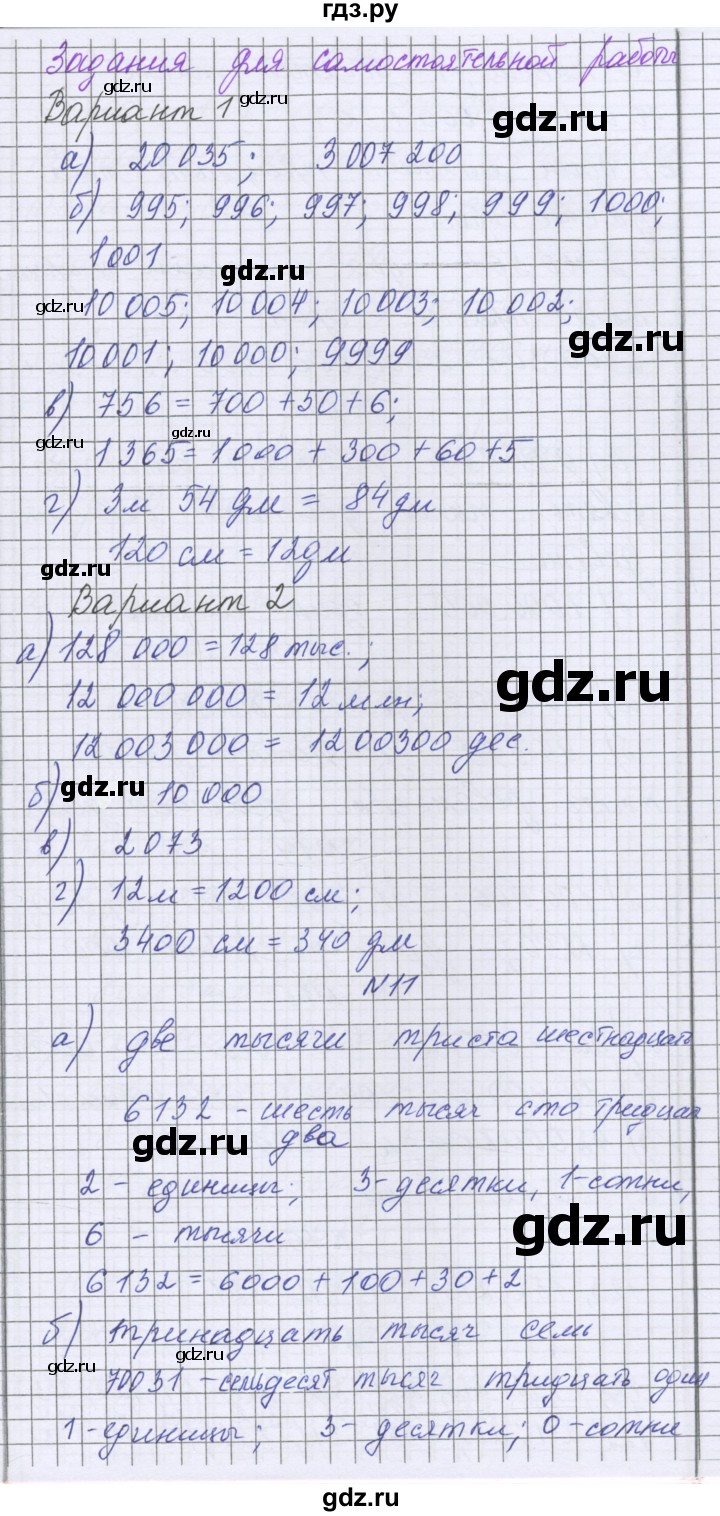 гдз.ру
Задания для самостоятельной работы
gdz.ru
Вариант 1 gdz.ru
gdz.ru
а) 20 035; 3 007 200
б) 995; 996; 997; 998; 999; 1000;
1001
gdz.ru
gdz.ru 10 005; 10 004; 10 003; 10 002;
gdz.ru
10 001; 10 000; 9999
в) 756 = 700 + 50 + 6;
gdz.ru gdz.ru
1 365 = 1 000 + 300 + 60 + 5
г) 3м 54 дм = 84 дм
120 см = 12 дм
gdz.ru
Вариант 2
а) 128 000 = 128 тыс.;
gdz.ru
12 000 000 = 12 млн;
12 003 000 = 1200300 дес.
б) gdz.ru 10 000
в) 2 073
г) 12 м = 1200 см;
3400 см = 340 дм
N11
а) две тысячи триста шестнадцать
6 132 - шесть тысяч сто тридцать
gdz.ru два
2 - единицы; 3- десятки, 1-сотни,
gdz.ru
6 - тысячи
6 132 = 6000 + 100 + 30 + 2
б) тринадцать тысяч семь
gdz.ru gdz.ru
70031 - семьдесят тысяч тридцать один
1 - единицы; 3 - десятки; 0 - сотни
gdz.ru